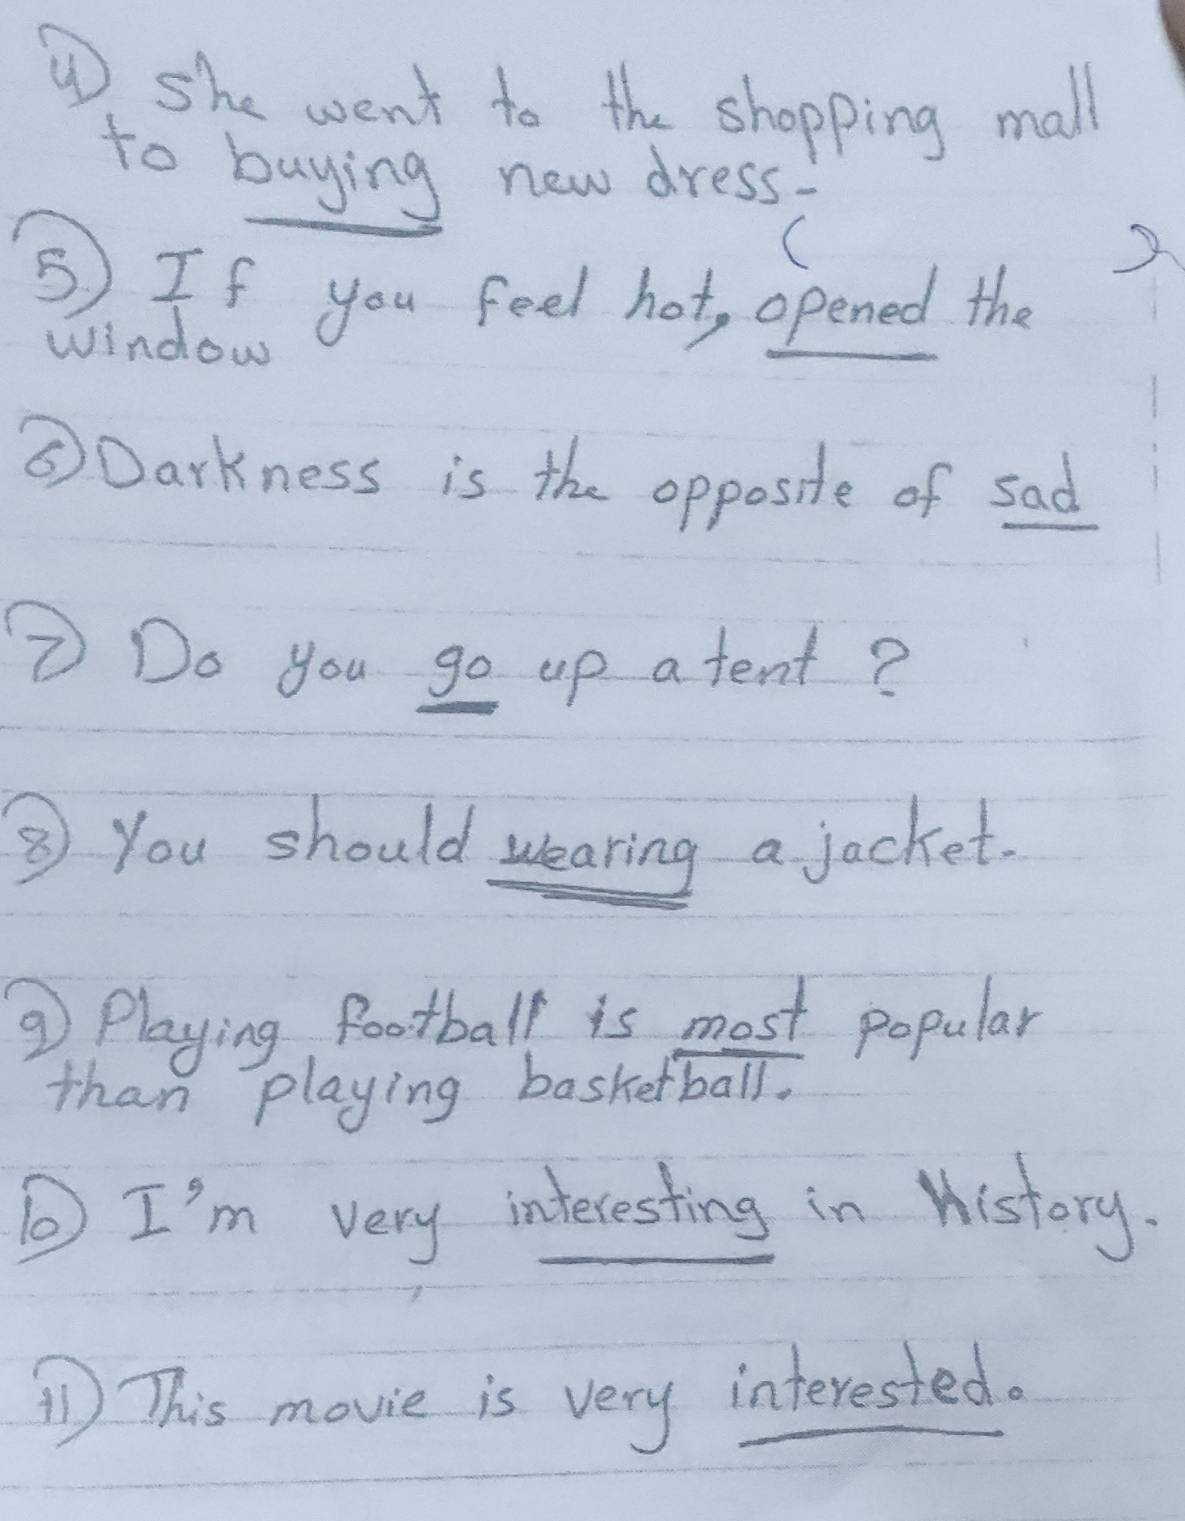 4) She went to the shopping mall
to buying new dress.
5) If you feel hot, opened the
window
6) Darkness is the opposite of sad
7) Do you go up a tent ?
8) You should wearing a jacket.
9) Playing football is most popular
than playing basketball.
10) I'm very interesting in History.
11) This movie is very interested.